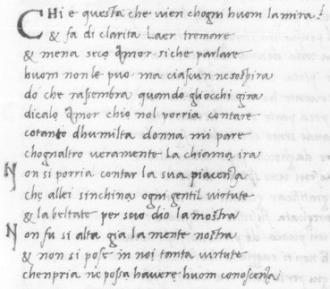 CHi e questa che vien chogni huom la mira
& fa di clarita l aer tremare
& mena seco Amor si che parlare
huom non le puo ma ciascun ne sospira
do che rassembra quando gliocchi gira
dicalo Amor chio nol porria contare
cotanto dhumilta donna mi pare
chognaltro veramente la chiamo ira
Non si porria contar la sua piacenza
che allei sinchina ogni gentil virtute
& la beltate per suo dio la mostra
Non fu si alta gia la mente nostra
& non si pose in noi tanta virtute
chenpria ne possa havere huom conoscenza